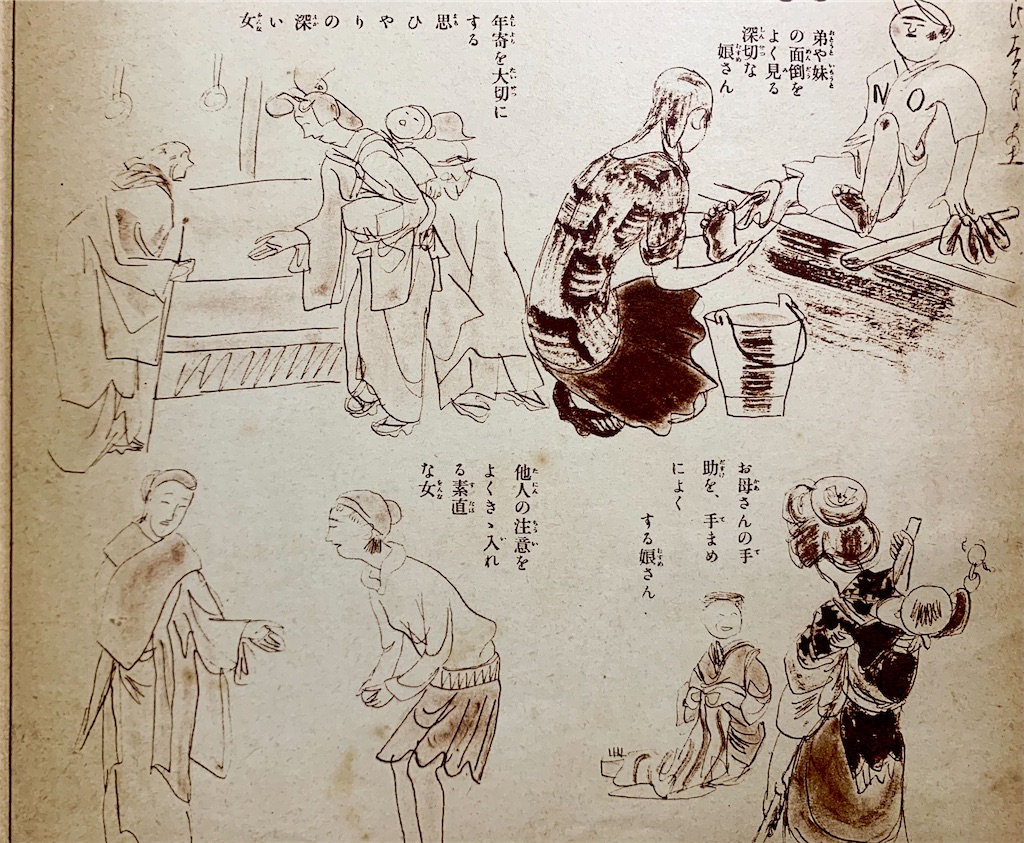 弟や妹
の面倒を
よく見る
深切な
娘さん
NO
年寄を大切に
する思ひやりの深い女
お母さんの手
助を、手まめ
によく
する娘さん
他人の注意を
よくきゝ入れ
る素直
な女